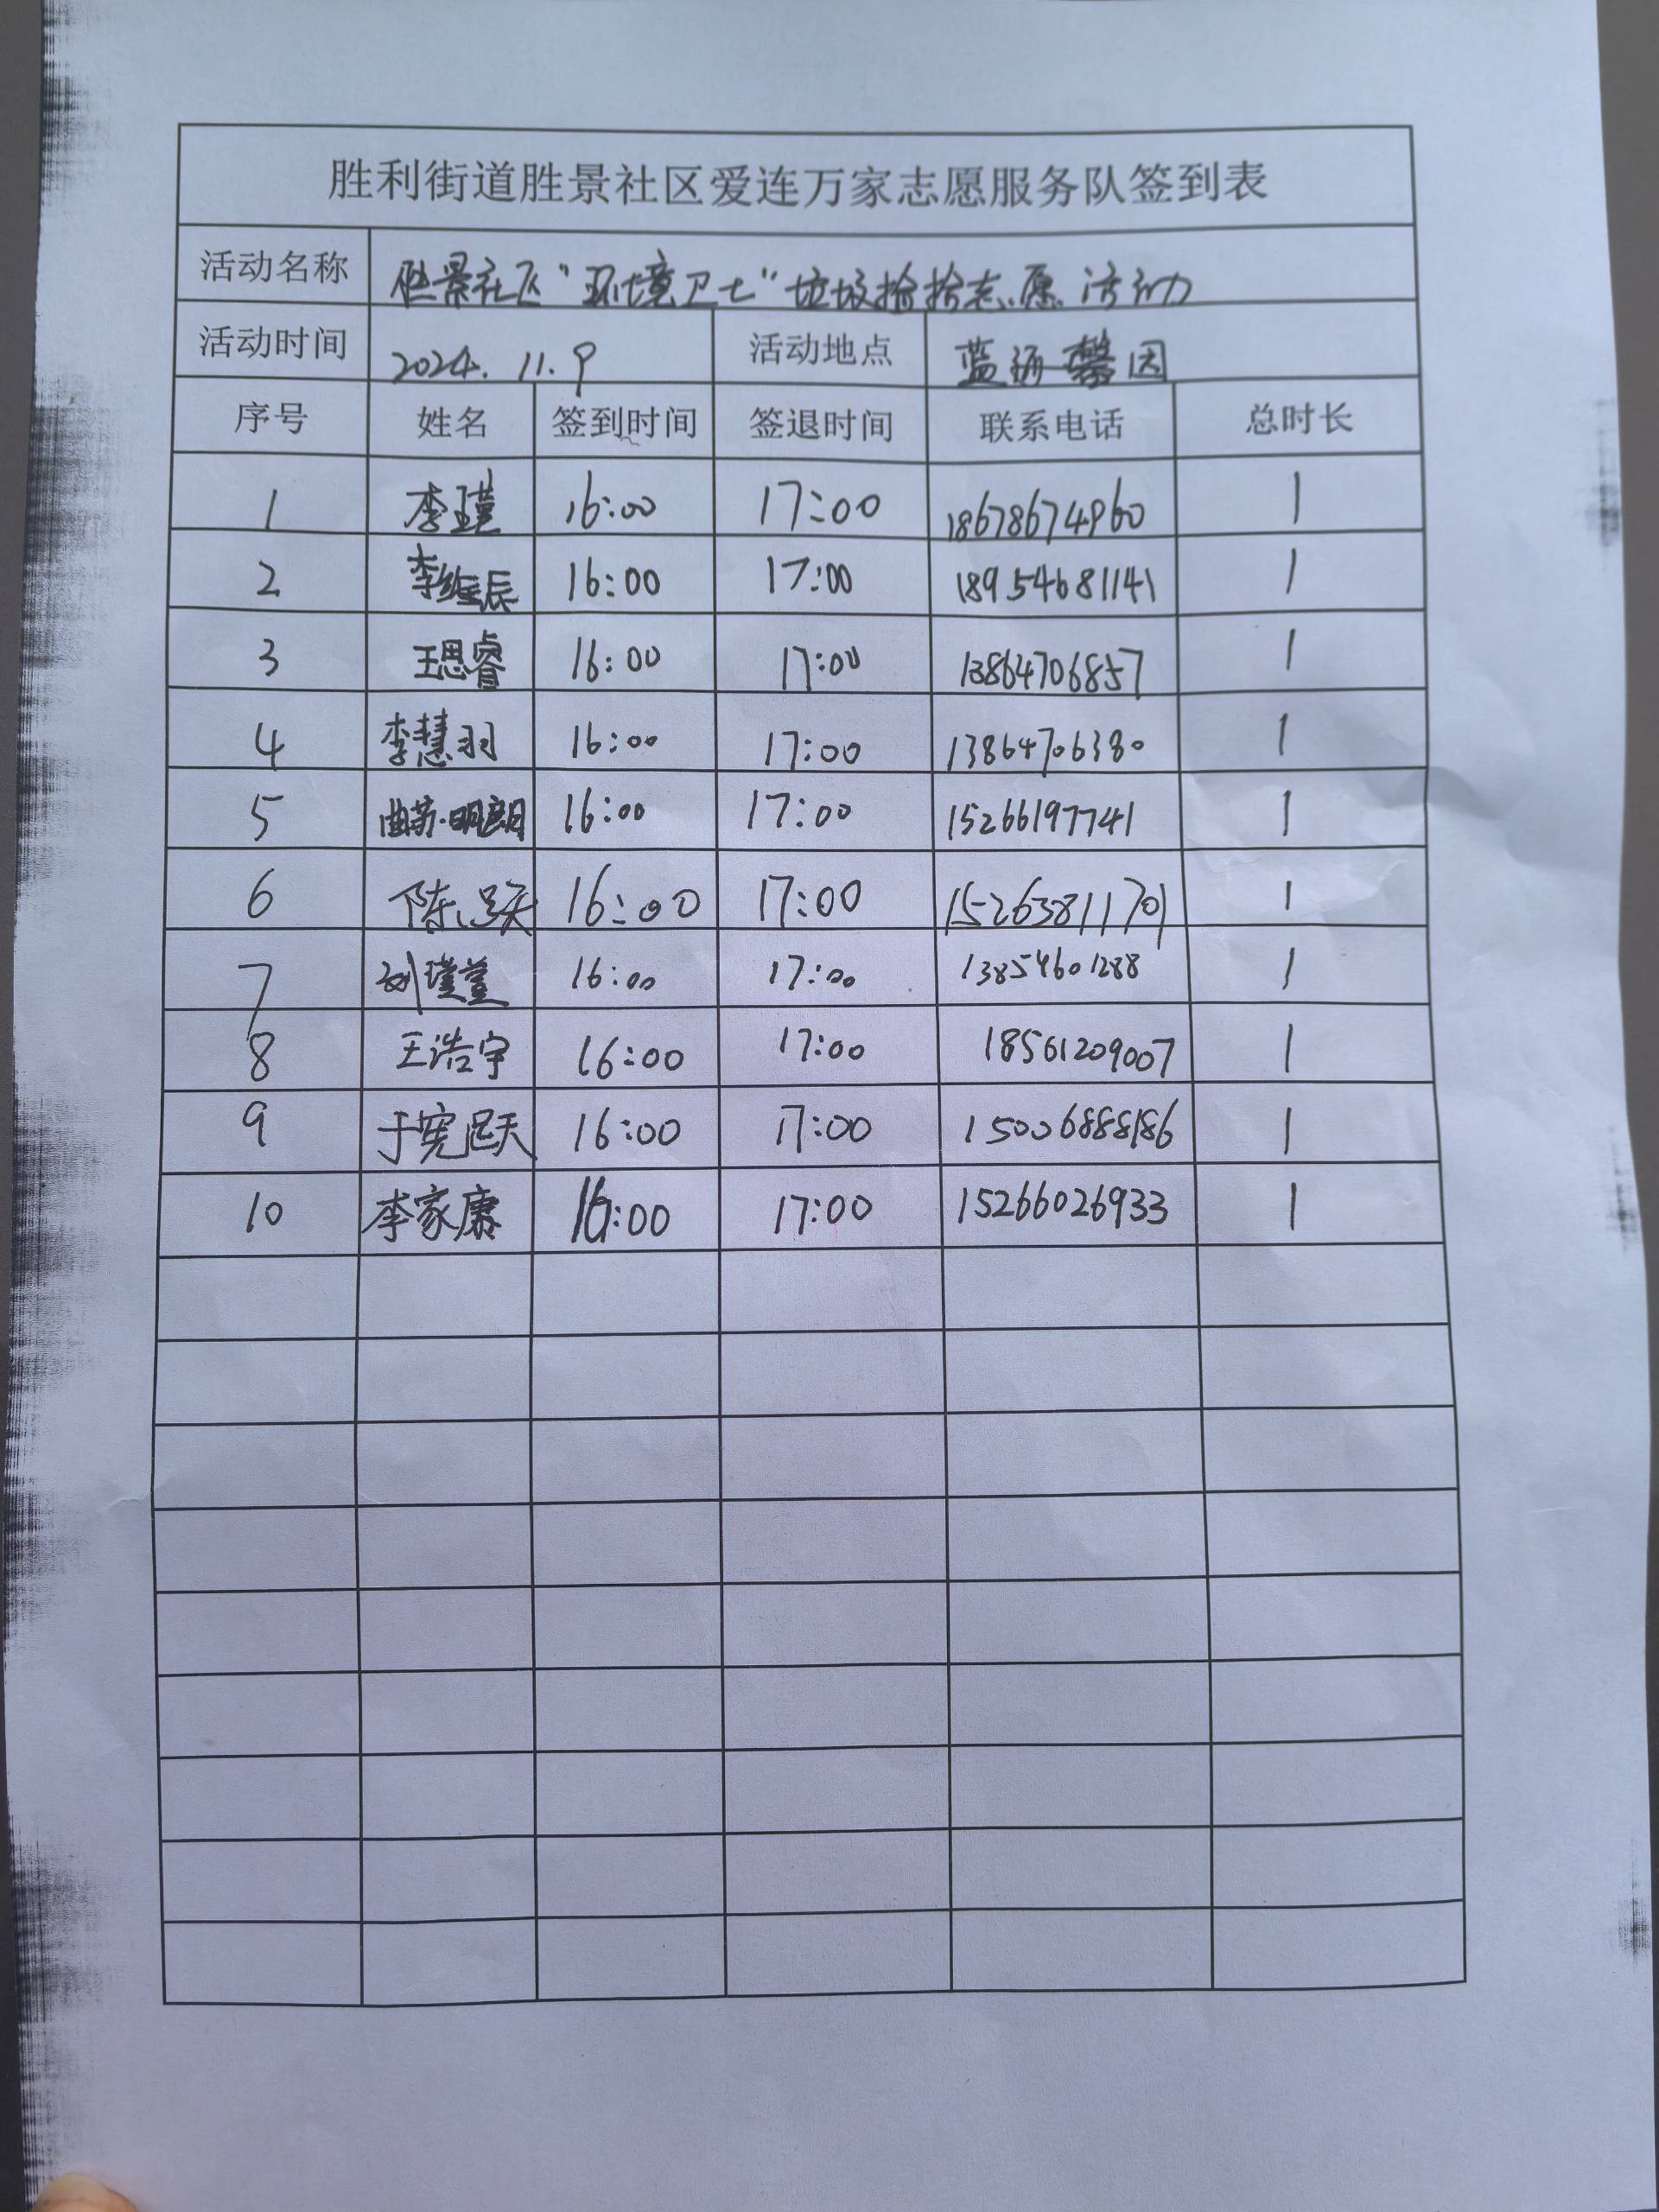 胜利街道胜景社区爱连万家志愿服务队签到表
活动名称 胜景社区“环境卫士”垃圾捡拾志愿活动
活动时间 2024.11.9 活动地点 蓝海馨园
序号 姓名 签到时间 签退时间 联系电话 总时长
1 李瑾 16:00 17:00 18678674960 1
2 李维辰 16:00 17:00 18954681141 1
3 王思睿 16:00 17:00 13864706857 1
4 李慧羽 16:00 17:00 13864706380 1
5 曲苏·明朗 16:00 17:00 15266197741 1
6 陈跃 16:00 17:00 15263811701 1
7 刘瑾萱 16:00 17:00 13854601288 1
8 王浩宇 16:00 17:00 18561209007 1
9 于宪跃 16:00 17:00 15006888186 1
10 李家康 16:00 17:00 15266026933 1